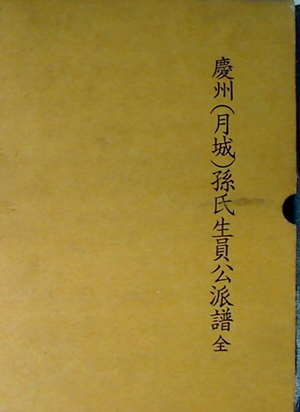 慶州(月城)孫氏生員公派譜 全